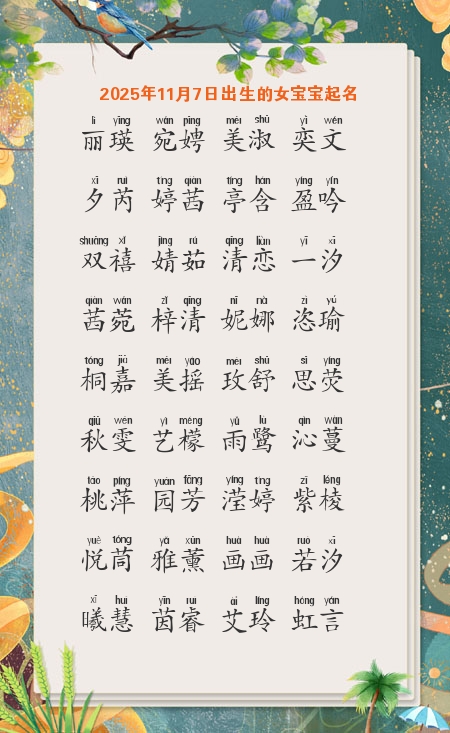 2025年11月7日出生的女宝宝起名
lì yīng wǎn pīng měi shū yì wén
丽瑛 宛娉 美淑 奕文
xī ruì tíng qiàn tíng hán yíng yín
夕芮 婷茜 亭含 盈吟
shuāng xǐ jìng rú qīng liàn yī xī
双禧 婧茹 清恋 一汐
qiàn wǎn zǐ qīng nī nà zī yú
茜菀 梓清 妮娜 恣瑜
tóng jiā měi yáo méi shū sī yíng
桐嘉 美摇 玫舒 思荧
qiū wén yì méng yǔ lù qìn màn
秋雯 艺檬 雨鹭 沁蔓
táo píng yuán fāng yíng tíng zǐ léng
桃萍 园芳 滢婷 紫棱
yuè tóng yǎ xūn huà huà ruò xī
悦茼 雅薰 画画 若汐
xī huì yīn ruì ài líng hóng yán
曦慧 茵睿 艾玲 虹言